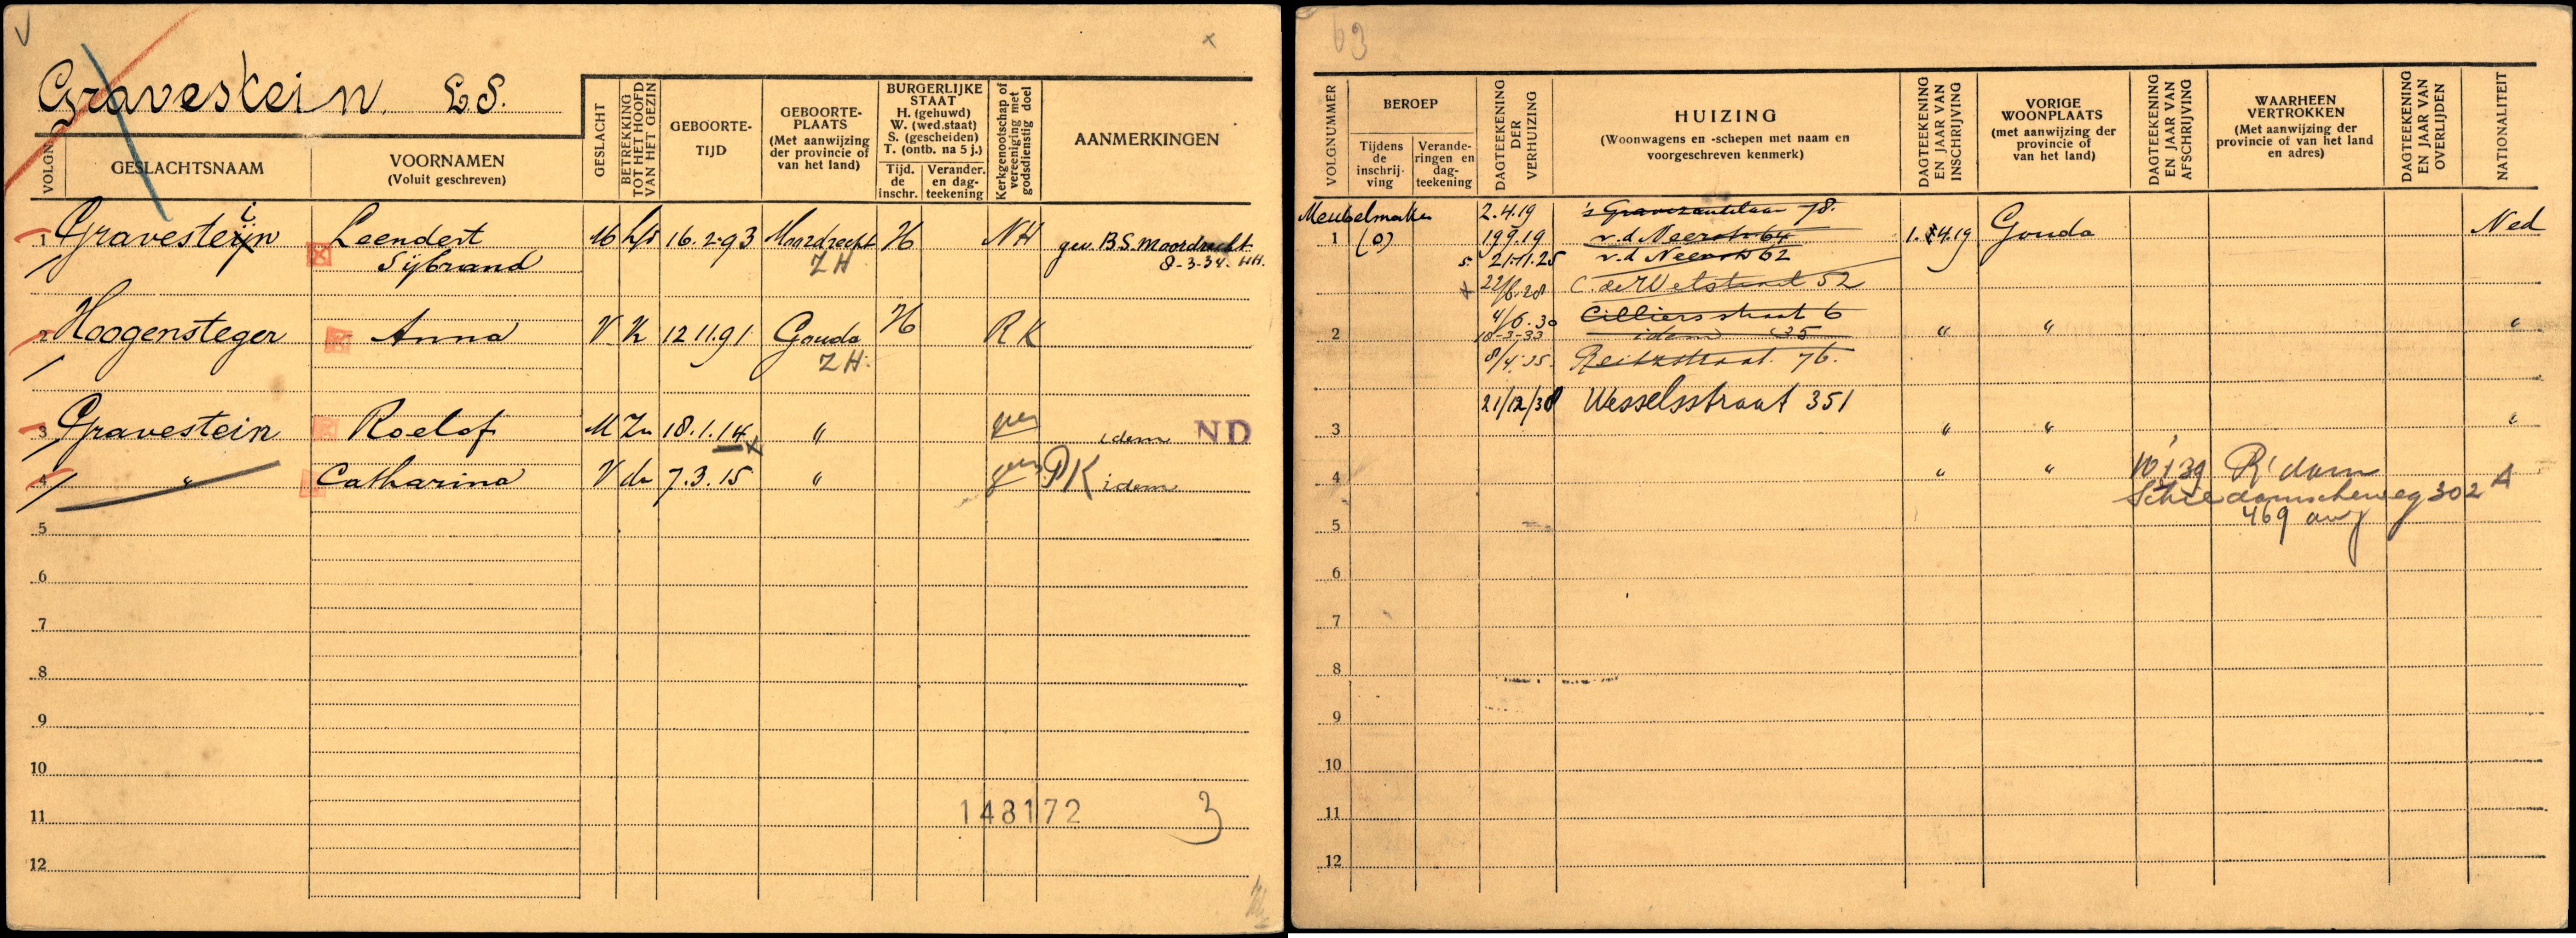 63
Gravestein. L.S.
VOLGN.
GESLACHTSNAAM
VOORNAMEN
(Voluit geschreven)
GESLACHT
BETREKKING
TOT HET HOOFD
VAN HET GEZIN
GEBOORTE-
TIJD
GEBOORTE-
PLAATS
(Met aanwijzing
der provincie of
van het land)
BURGERLIJKE
STAAT
H. (gehuwd)
W. (wed.staat)
S. (gescheiden)
T. (ontb. na 5 j.)
Tijd.
de
inschr.
Verander.
en dag-
teekening
Kerkgenootschap of
vereeniging met
godsdienstig doel
AANMERKINGEN
1 Gravestein Leendert M hfd 16.2.93 Moordrecht H NH gew. B.S. Moordrecht
Sijbrand ZH 8-3-34. HH.
2 Hoogensteger Anna V K 12.11.91 Gouda H RK
ZH.
3 Gravestein Roelof M Zn 18.1.14 " ger idem ND
4 " Catharina V dr 7.3.15 " ger RK idem
5
6
7
8
9
10
11
12
143172 3
VOLGNUMMER
BEROEP
Tijdens
de
inschrij-
ving
Verande-
ringen en
dag-
teekening
DAGTEEKENING
DER
VERHUIZING
HUIZING
(Woonwagens en -schepen met naam en
voorgeschreven kenmerk)
DAGTEEKENING
EN JAAR VAN
INSCHRIJVING
VORIGE
WOONPLAATS
(met aanwijzing der
provincie of
van het land)
DAGTEEKENING
EN JAAR VAN
AFSCHRIJVING
WAARHEEN
VERTROKKEN
(Met aanwijzing der
provincie of van het land
en adres)
DAGTEEKENING
EN JAAR VAN
OVERLIJDEN
NATIONALITEIT
Meubelmaker 2.4.19 's Gravezandelaan 78.
1 (o) 19.9.19 v.d Neerstr 64 1.4.19 Gouda Ned
s. 21.11.25 v.d Neerstr 62
22/6.28 C. de Wetstraat 52
4/6.30 Cilliersstraat 6
2 18-3-33 idem 35 " " "
8/4.35. Reitzstraat. 76.
21/12/38 Wesselsstraat 351
3 " " "
4 " " 10/1 39 R'dam
Schiedamscheweg 302 A
469
5
6
7
8
9
10
11
12